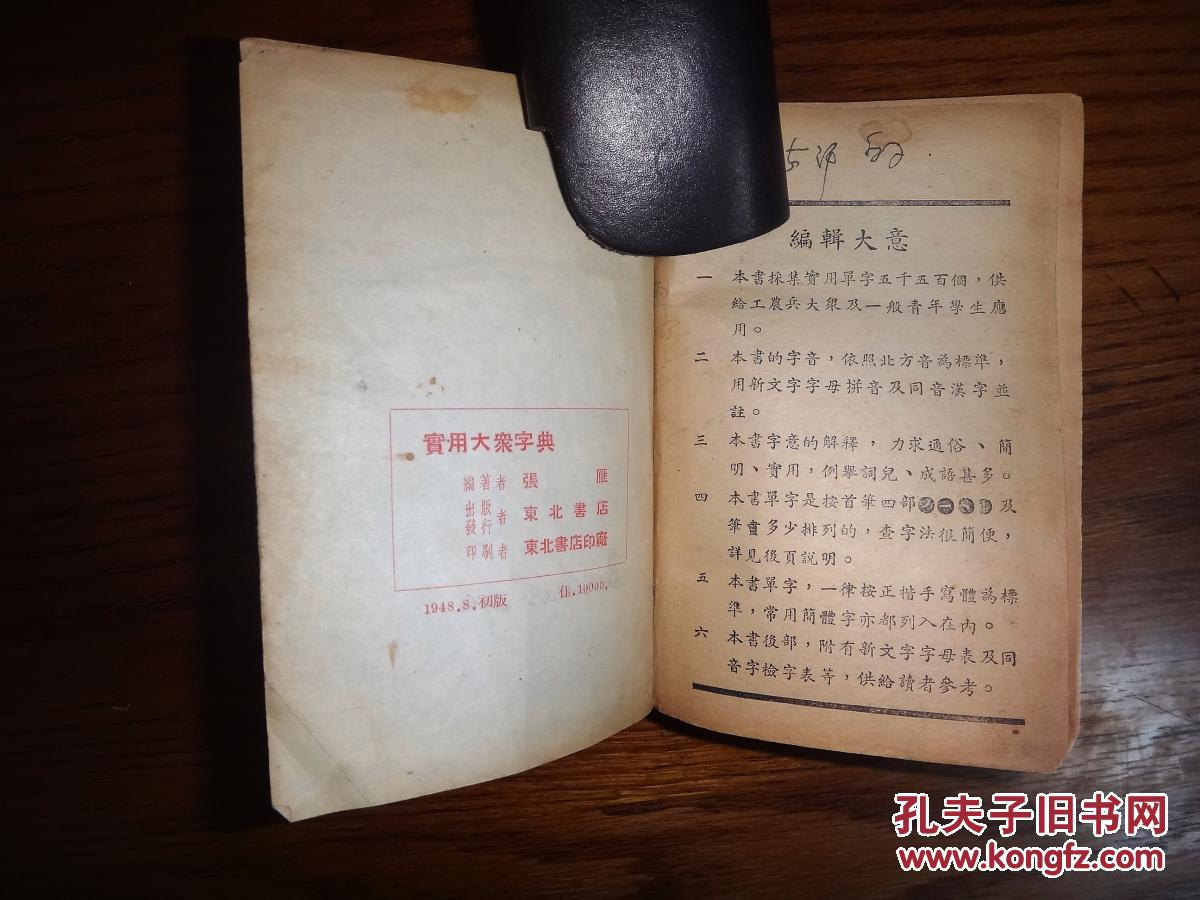 實用大衆字典
編著者 張雁
出版
發行 者 東北書店
印刷者 東北書店印廠
1948.8.初版 佳.10000.
編輯大意
一 本書採集實用單字五千五百個，供
給工農兵大衆及一般青年學生應
用。
二 本書的字音，依照北方音為標準，
用新文字字母拼音及同音漢字並
註。
三 本書字意的解釋，力求通俗、簡
明、實用，例舉詞兒、成語甚多。
四 本書單字是按首筆四部及
筆畫多少排列的，查字法很簡便，
詳見後頁說明。
五 本書單字，一律按正楷手寫體為標
準，常用簡體字亦都列入在內。
六 本書後部，附有新文字字母表及同
音字檢字表等，供給讀者參考。
孔夫子旧书网
www.kongfz.com